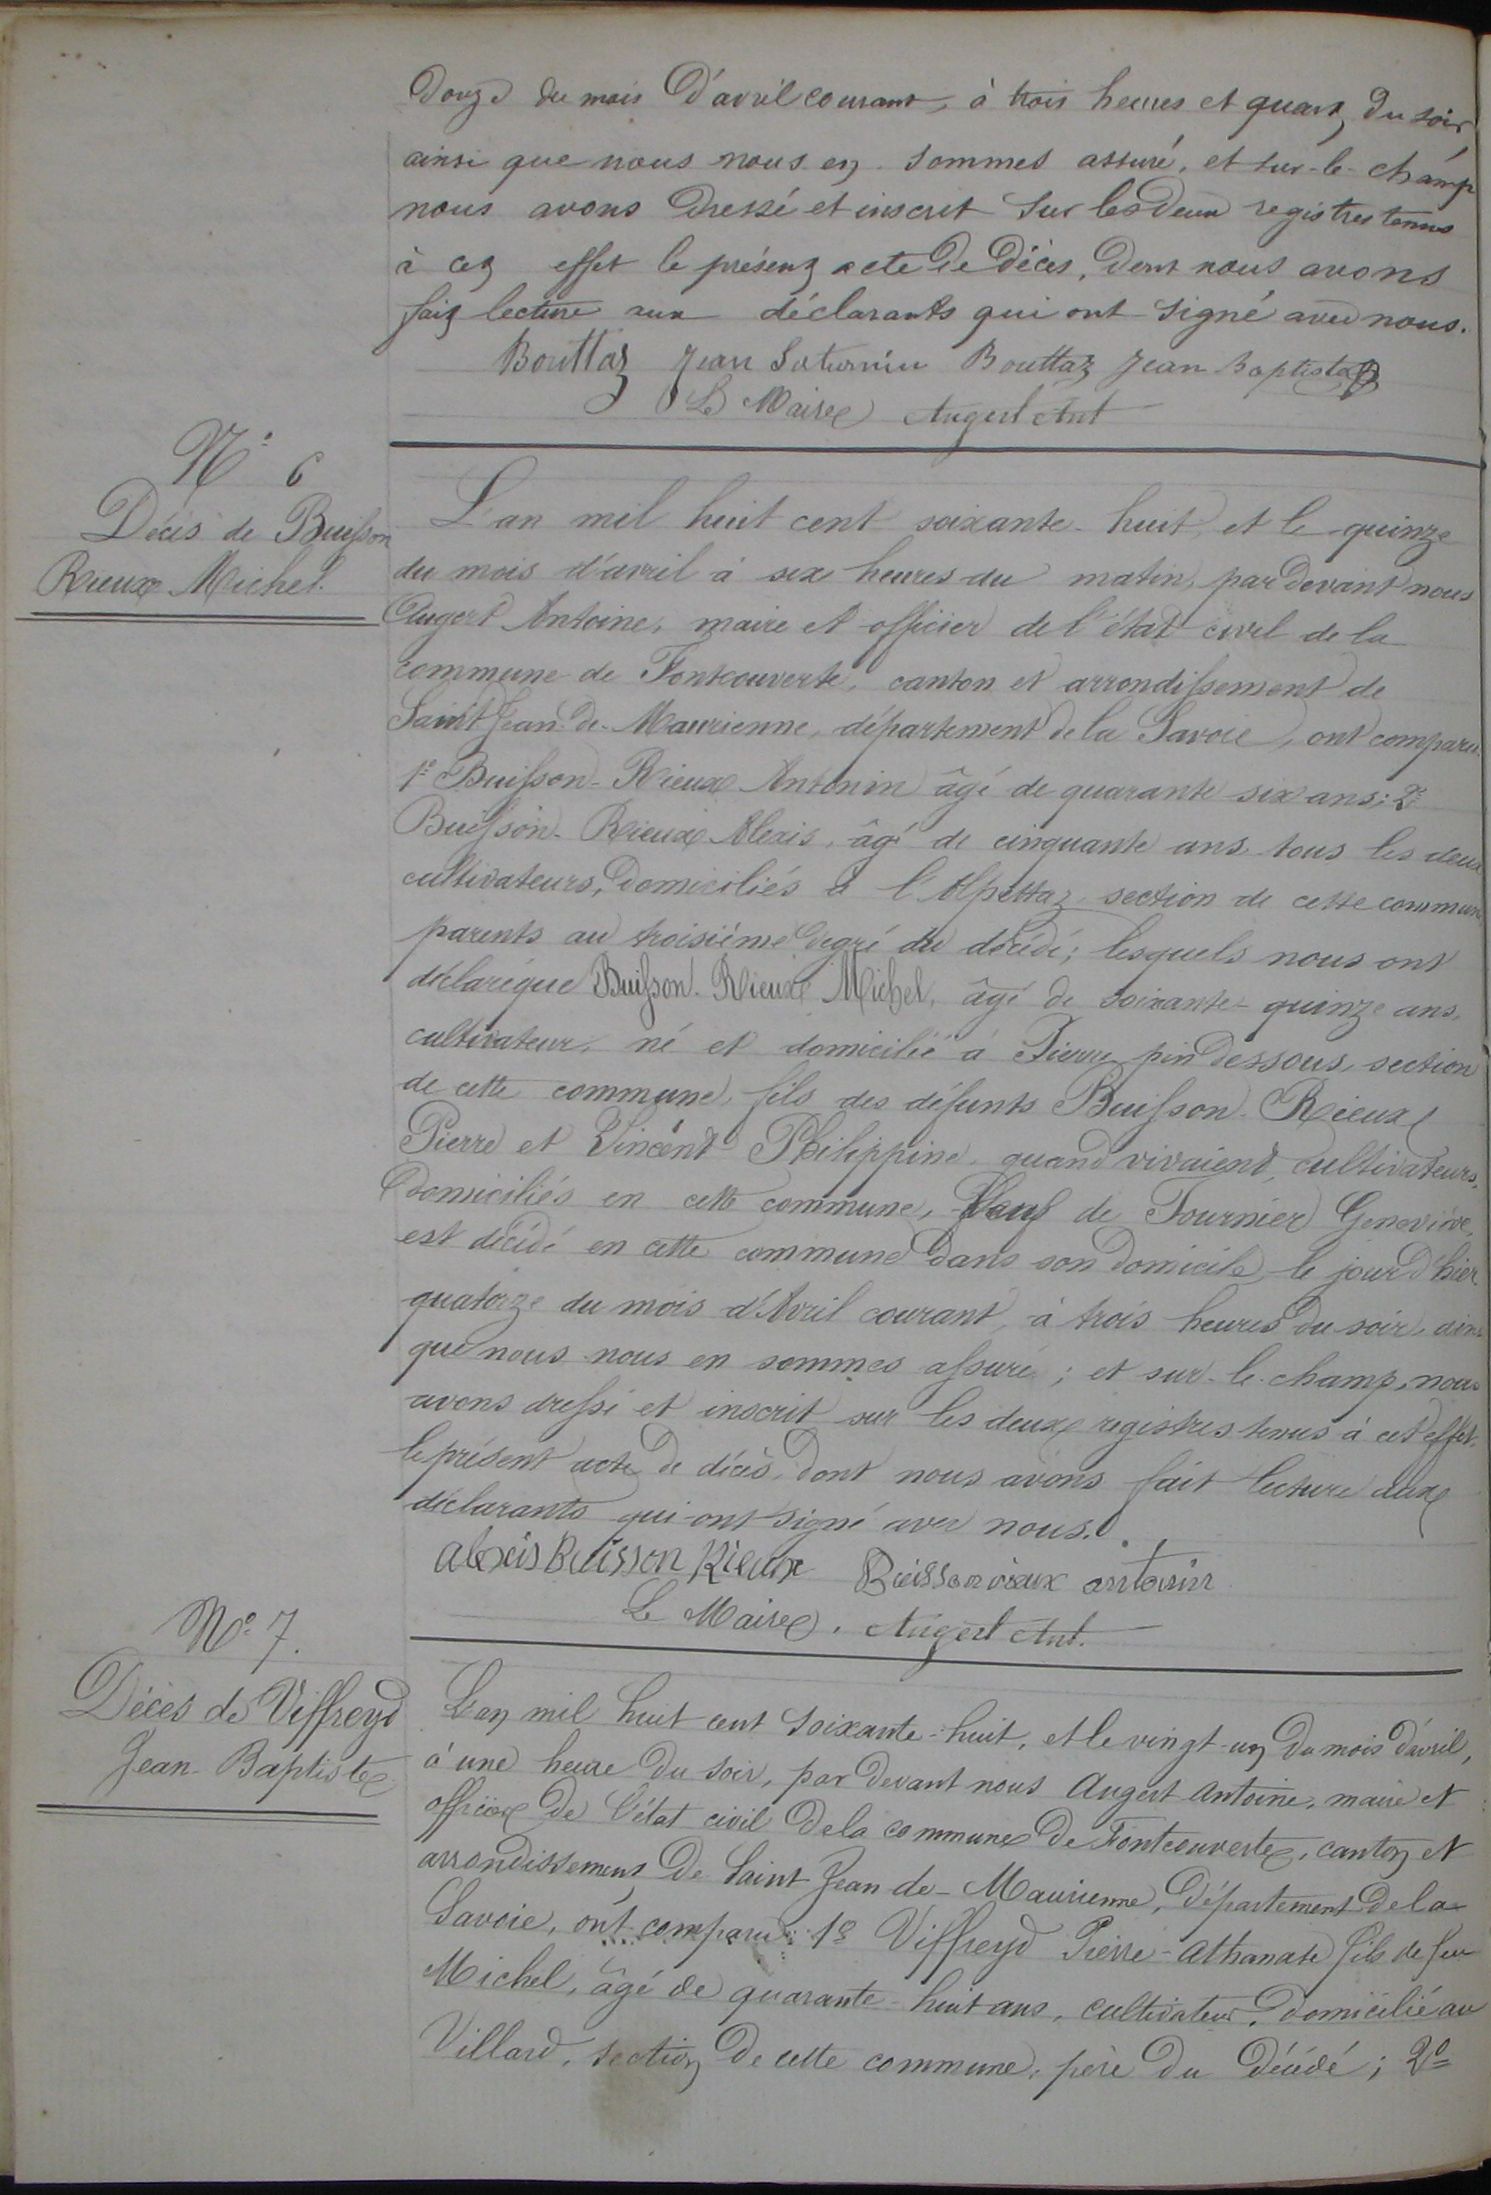 douze du mois d'avril courant, à trois heures et quart du soir,
ainsi que nous nous en sommes assuré, et sur-le-champ
nous avons dressé et inscrit sur les deux registres tenus
à cet effet le présent acte de décès, dont nous avons
fait lecture aux déclarants qui ont signé avec nous.
Bouttaz Jean Saturnin Bouttaz Jean Baptiste
Le Maire Augert Ant
N° 6
Décès de Buisson
Rieux Michel.
L'an mil huit cent soixante-huit, et le quinze
du mois d'avril à six heures du matin, par devant nous
Augert Antoine, maire et officier de l'état civil de la
commune de Fontcouverte, canton et arrondissement de
Saint Jean-de-Maurienne, département de la Savoie, ont comparu
1° Buisson-Rieux Antonin âgé de quarante six ans; 2°
Buisson-Rieux Alexis, âgé de cinquante ans tous les deux
cultivateurs, domiciliés à l'Alpettaz section de cette commune
parents au troisième degré du décédé; lesquels nous ont
déclaré que Buisson-Rieux Michel, âgé de soixante-quinze ans,
cultivateur, né et domicilié à Pierre pin dessous, section
de cette commune, fils des défunts Buisson-Rieux
Pierre et Vincent Philippine, quand vivaient, cultivateurs,
domiciliés en cette commune, Veuf de Fournier Geneviève,
est décédé en cette commune dans son domicile, le jour d'hier
quatorze du mois d'Avril courant, à trois heures du soir, ainsi
que nous nous en sommes assuré; et sur-le-champ, nous
avons dressé et inscrit sur les deux registres tenus à cet effet,
le présent acte de décès, dont nous avons fait lecture aux
déclarants qui ont signé avec nous.
alexis Buisson Rieux Buisson rieux antonin
Le Maire, Augert Ant.
N° 7.
Décès de Viffreyd
Jean-Baptiste
L'an mil huit cent soixante-huit, et le vingt-un du mois d'avril,
à une heure du soir, par devant nous Augert Antoine, maire et
officier de l'état civil de la commune de Fontcouverte, canton et
arrondissement de Saint Jean-de-Maurienne, département de la
Savoie, ont comparu: 1° Viffreyd Pierre-Athanase fils de feu
Michel, âgé de quarante-huit ans, cultivateur, domicilié au
Villard, section de cette commune, père du décédé; 2°